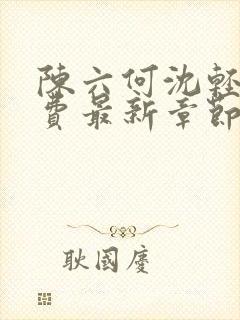 陳六何沈輕
費最新章節
耿國慶